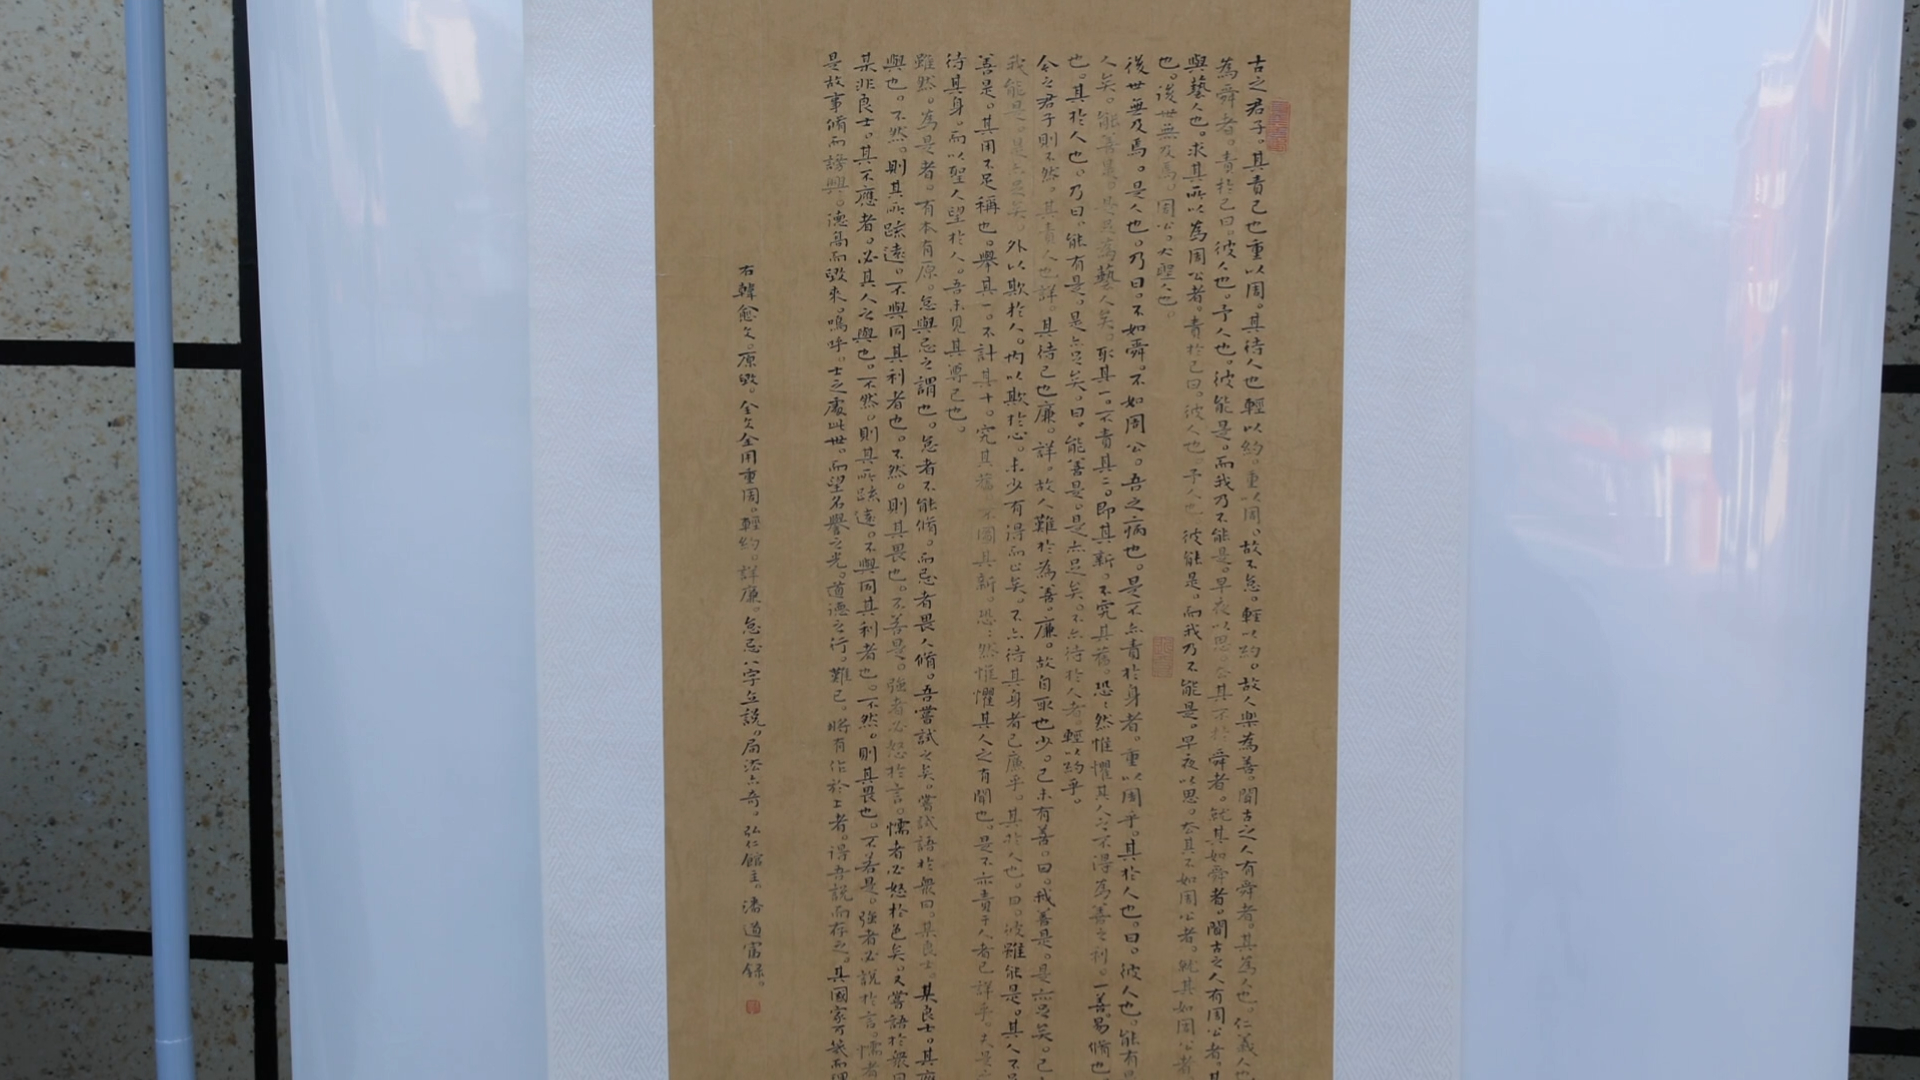 古之君子。其責己也重以周。其待人也輕以約。重以周。故不怠。輕以約。故人樂為善。聞古之人有舜者。其為人也。仁義人也
為舜者。責於己曰。彼人也。予人也。彼能是。而我乃不能是。早夜以思。去其不於舜者。就其如舜者。聞古之人有周公者。其
與藝人也。求其所以為周公者。責於己曰。彼人也。予人也。彼能是。而我乃不能是。早夜以思。去其不如周公者。就其如周公者
也。後世無及焉。周公。大聖人也。
後世無及焉。是人也。乃曰。不如舜。不如周公。吾之病也。是不亦責於身者。重以周乎。其於人也。曰。彼人也。能有
人矣。能善是。是足為藝人矣。取其一。不責其二。即其新。不究其舊。恐恐然惟懼其人之不得為善之利。一善。易脩也
也。其於人也。乃曰。能有是。是亦足矣。曰。能善是。是亦足矣。不亦待於人者。輕以約乎。
今之君子則不然。其責人也詳。其待己也廉。詳。故人難於為善。廉。故自取也少。己未有善。曰。我善是。是亦足矣。己
我能是。是亦足矣。外以欺於人。內以欺於心。未少有得而止矣。不亦待其身者已廉乎。其於人也。曰。彼雖能是。其人不足
善是。其用不足稱也。舉其一。不計其十。究其舊 不圖其新。恐恐然惟懼其人之有聞也。是不亦責于人者已詳乎。夫是之
待其身。而以聖人望於人。吾未見其尊己也。
雖然。為是者。有本有原。怠與忌之謂也。怠者不能脩。而忌者畏人脩。吾嘗試之矣。嘗試語於眾曰。某良士。某良士。其應
與也。不然。則其所疏遠。不與同其利者也。不然。則其畏也。不善是。強者必怒於言。懦者必怒於色矣。又嘗語於眾曰
某非良士。其不應者。必其人之與也。不然。則其所疏遠。不與同其利者也。不然。則其畏也。不若是。強者必說於言。懦者
是故事脩而謗興。德高而毀來。嗚呼。士之處此世。而望名譽之光。道德之行。難已。將有作於上者。得吾說而存之。其國家可幾而理
右韓愈文。原毀。全文全用重周。輕約。詳廉。怠忌八字立說。局法亦奇。弘仁館主。潘道富錄。